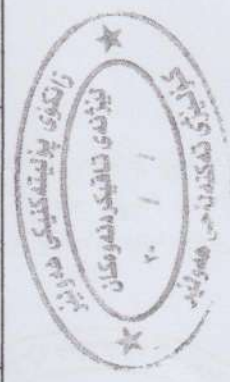 زانکۆی پۆلیتەکنیکی هەولێر
لێژنەی تاقیکردنەوەکان
٢٠ / /
کۆلێژی تەکنەلۆجی هەولێر